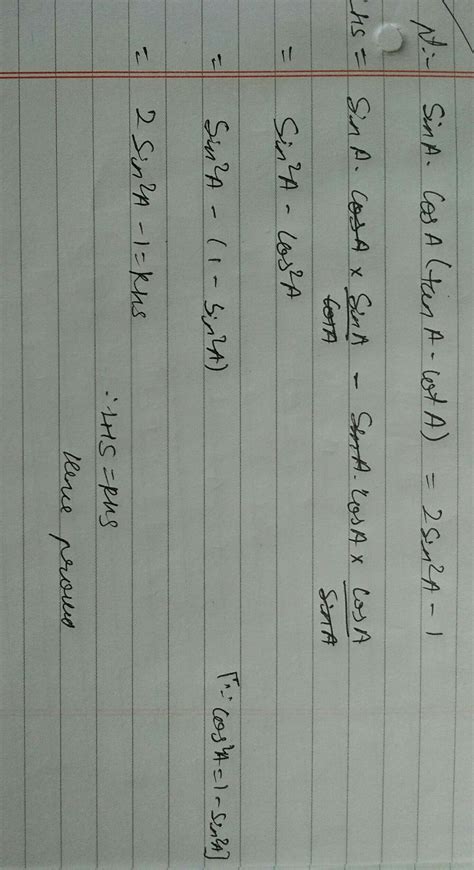 SinA. CosA (tanA - CotA) = 2Sin²A - 1
LHS = SinA. CosA × SinA/CosA - SinA. CosA × CosA/SinA
= Sin²A - Cos²A
= Sin²A - (1 - Sin²A) [∵ Cos²A = 1 - Sin²A]
= 2Sin²A - 1 = RHS
∴ LHS = RHS
Hence proved